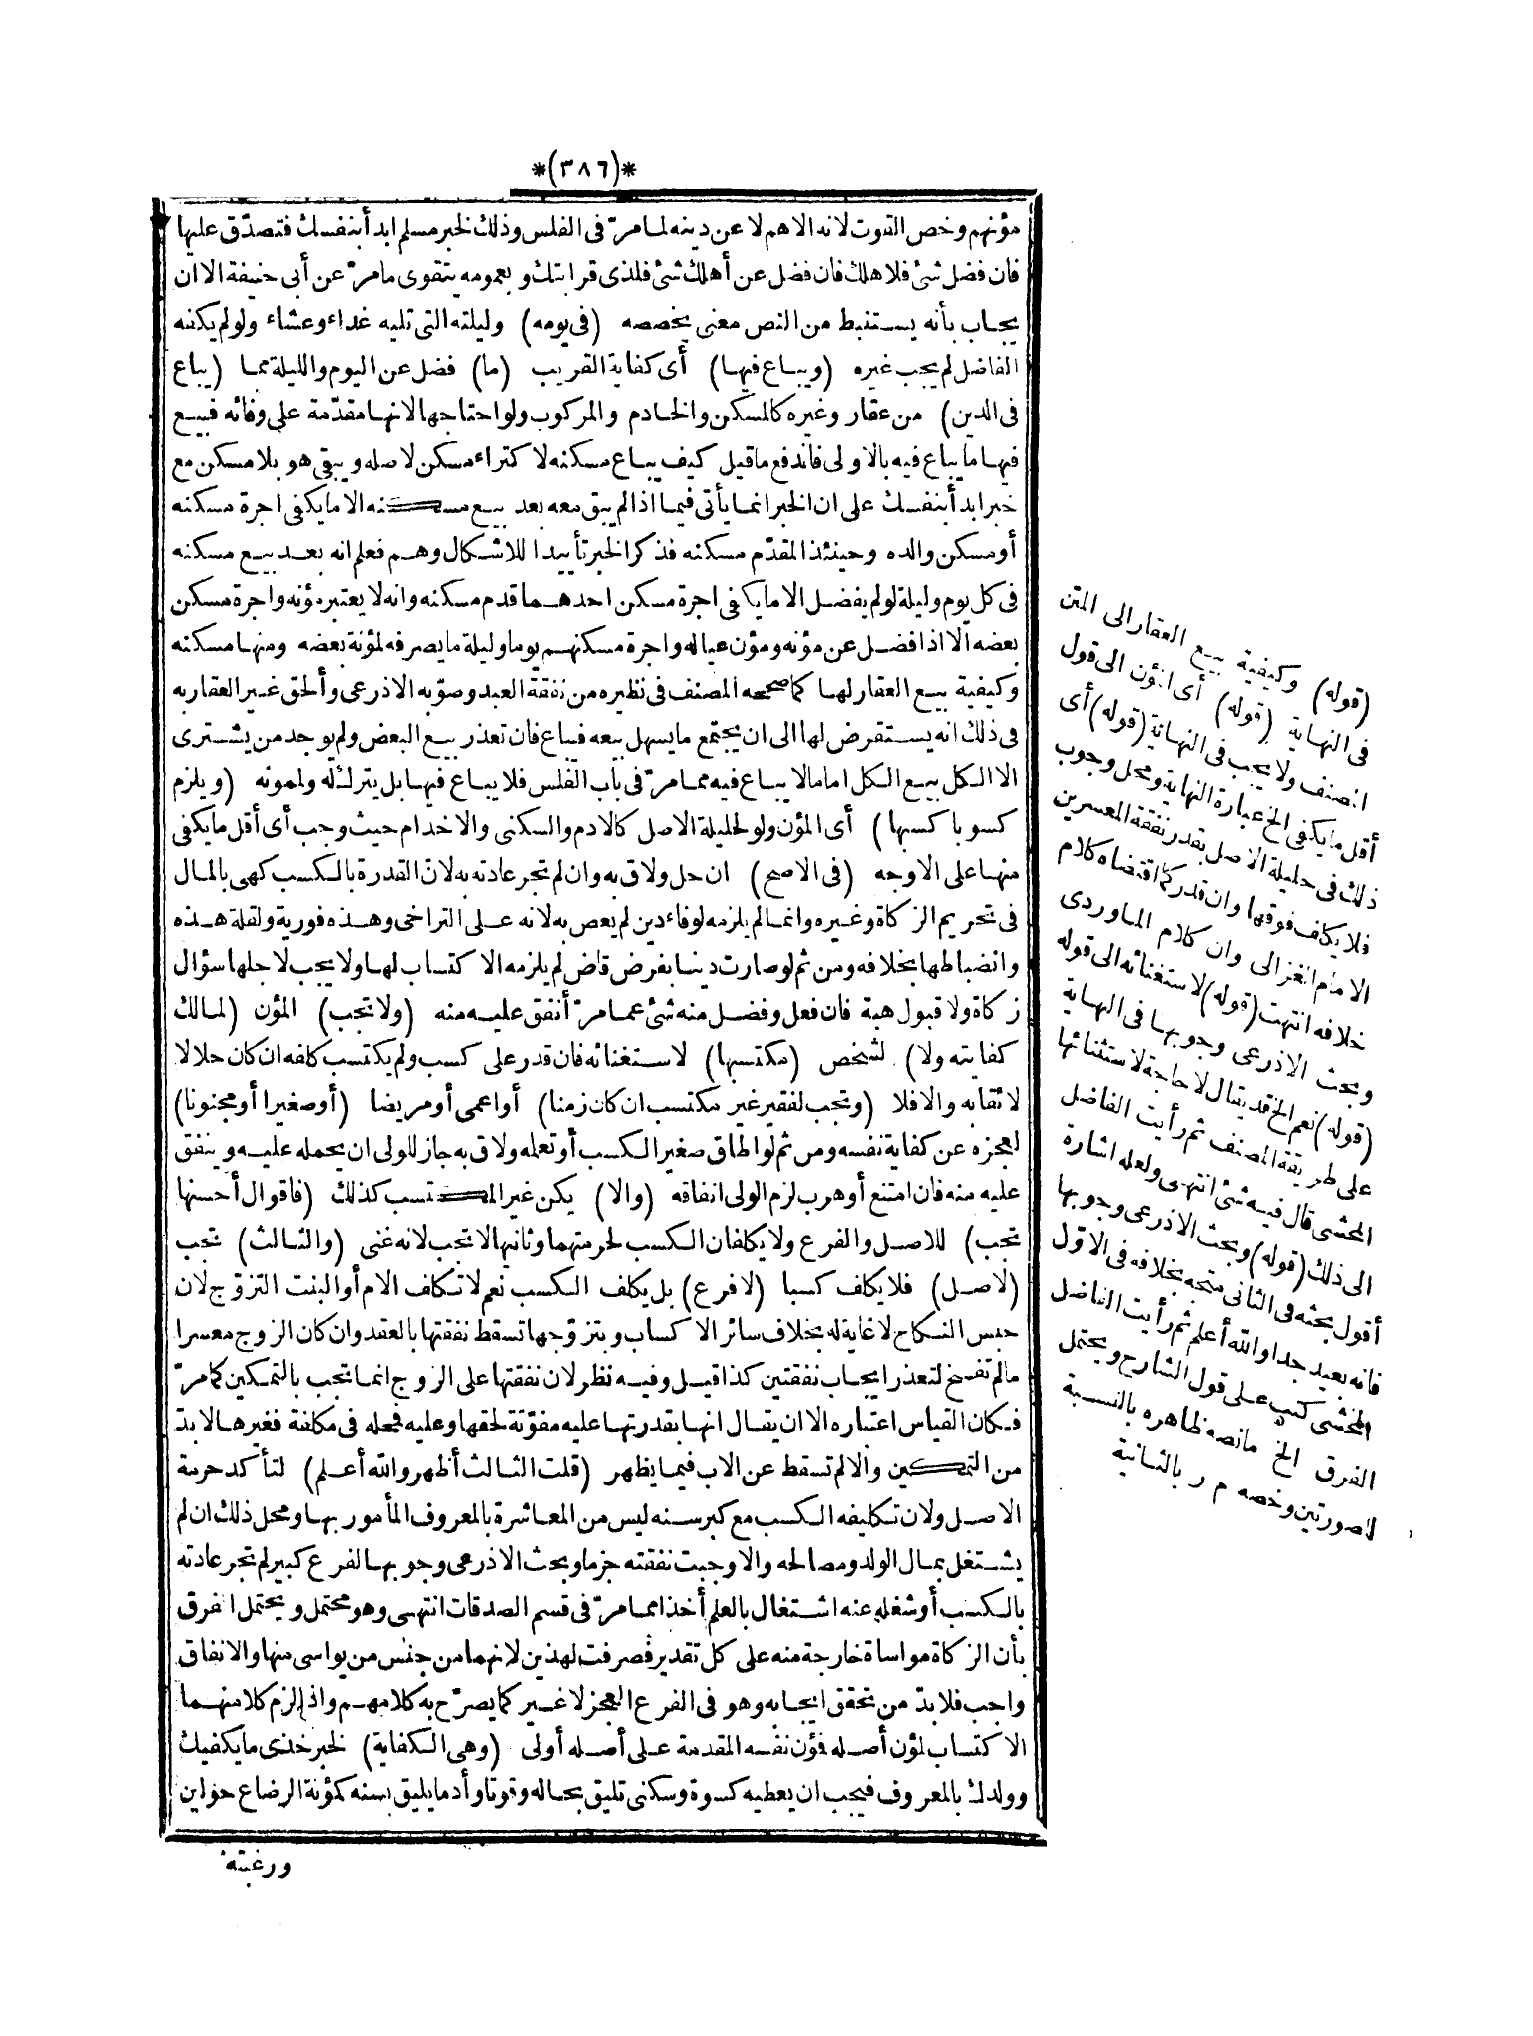 *(٣٨٦)*
مؤنهم وخص القوت لانه الاهم لا عن دينه لما مرّ فى الفلس وذلك لخبر مسلم ابدأ بنفسك فتصدّق عليها
فان فضل شئ فلاهلك فان فضل عن أهلك شئ فلذى قرابتك وبعمومه يتقوى ما مرّ عن أبى حنيفة الا ان
يجاب بأنه يستنبط من النص معنى يخصصه (فى يومه) وليلته التى تليه غداء وعشاء ولو لم يكفه
الفاضل لم يجب غيره (ويباع فيها) أى كفاية القريب (ما) فضل عن اليوم والليلة مما (يباع
فى الدين) من عقار وغيره كالمسكن والخادم والمركوب ولو احتاجها لانها مقدّمة على وفائه فبيع
فيها ما يباع فيه بالاولى فاندفع ما قيل كيف يباع مسكنه لاكتراء مسكن لاصله ويبقى هو بلا مسكن مع
خبر ابدأ بنفسك على ان الخبر انما يأتى فيما اذا لم يبق معه بعد بيع مسكنه الا ما يكفى اجرة مسكنه
أو مسكن والده وحينئذ المقدّم مسكنه فذكر الخبر تأييدا للاشكال وهم فعلم انه بعد بيع مسكنه
فى كل يوم وليلة لو لم يفضل الا ما يكفى اجرة مسكن احدهما قدم مسكنه وانه لا يعتبر مؤنه واجرة مسكن
بعضه الا اذا فضل عن مؤنه ومؤن عياله واجرة مسكنهم يوما وليلة ما يصرفه لمؤنة بعضه ومنها مسكنه
وكيفية بيع العقار لها كما صححه المصنف فى نظيره من نفقة العبد وصوّبه الاذرعى وألحق غير العقار به
فى ذلك انه يستقرض لها الى ان يجتمع ما يسهل بيعه فيباع فان تعذر بيع البعض ولم يوجد من يشترى
الا الكل بيع الكل اما ما لا يباع فيه مما مرّ فى باب الفلس فلا يباع فيها بل يترك له ولممونه (ويلزم
كسوبا كسبها) أى المؤن ولو لحليلة الاصل كالادم والسكنى والاخدام حيث وجب أى أقل ما يكفى
منها على الاوجه (فى الاصح) ان حل ولاق به وان لم تجر عادته به لان القدرة بالكسب كهى بالمال
فى تحريم الزكاة وغيره وانما لم يلزمه لوفاء دين لم يعص به لانه على التراخى وهذه فورية ولقلة هذه
وانضباطها بخلافه ومن ثم لو صارت دينا بفرض قاض لم يلزمه الاكتساب لها ولا يجب لاجلها سؤال
زكاة ولا قبول هبة فان فعل وفضل منه شئ عما مرّ أنفق عليه منه (ولا تجب) المؤن (لمالك
كفايته ولا) لشخص (مكتسبها) لاستغنائه فان قدر على كسب ولم يكتسب كلفه ان كان حلالا
لائقا به والا فلا (وتجب لفقير غير مكتسب ان كان زمنا) أو اعمى أو مريضا (أو صغيرا أو مجنونا)
لعجزه عن كفاية نفسه ومن ثم لو اطاق صغير الكسب أو تعلمه ولاق به جاز للولى ان يحمله عليه وينفق
عليه منه فان امتنع أو هرب لزم الولى انفاقه (والا) يكن غير المكتسب كذلك (فاقوال أحسنها
تجب) للاصل والفرع ولا يكلفان الكسب لحرمتهما وثانيها لا تجب لانه غنى (والثالث) تجب
(لاصل) فلا يكلف كسبا (لا فرع) بل يكلف الكسب نعم لا تكلف الام أو البنت التزوّج لان
حبس النكاح لا غاية له بخلاف سائر الاكساب وبتزوّجها تسقط نفقتها بالعقد وان كان الزوج معسرا
ما لم تفسخ لتعذر ايجاب نفقتين كذا قيل وفيه نظر لان نفقتها على الزوج انما تجب بالتمكين كما مرّ
فكان القياس اعتباره الا ان يقال انها بقدرتها عليه مفوّتة لحقها وعليه فمحله فى مكلفة فغيرها لا بدّ
من التمكين والا لم تسقط عن الاب فيما يظهر (قلت الثالث أظهر والله أعلم) لتأكد حرمة
الاصل ولان تكليفه الكسب مع كبر سنه ليس من المعاشرة بالمعروف المأمور بها ومحل ذلك ان لم
يشتغل بمال الولد ومصالحه والا وجبت نفقته جزما وبحث الاذرعى وجوبها لفرع كبير لم تجر عادته
بالكسب أو شغله عنه اشتغال بالعلم أخذا مما مرّ فى قسم الصدقات انتهى وهو محتمل ويحتمل الفرق
بأن الزكاة مواساة خارجة منه على كل تقدير فصرفت لهذين لانهما من جنس من يواسى منها والانفاق
واجب فلا بدّ من تحقق ايجابه وهو فى الفرع العجز لا غير كما يصرّح به كلامهم واذا لزم كلا منهما
الاكتساب لمؤن أصله فمؤن نفسه المقدمة على أصله أولى (وهى الكفاية) لخبر خذى ما يكفيك
وولدك بالمعروف فيجب ان يعطيه كسوة وسكنى تليق بحاله وقوتا وأدما يليق بسنه كمؤنة الرضاع حولين
ورغبته
(قوله) وكيفية بيع العقار الى المتن
فى النهاية (قوله) أى المؤن الى قول
المصنف ولا يجب فى النهاية (قوله) أى
أقل ما يكفى الخ عبارة النهاية ومحل وجوب
ذلك فى حليلة الاصل بقدر نفقة المعسرين
فلا يكلف فوقها وان قدر كما اقتضاه كلام
الامام الغزالى وان كلام الماوردى
خلافه انتهت (قوله) لاستغنائه الى قوله
وبحث الاذرعى وجوبها فى النهاية
(قوله) نعم الخ قد يقال لا حاجة لاستثنائها
على طريقة المصنف ثم رأيت الفاضل
المحشى قال فيه شئ انتهى ولعله اشارة
الى ذلك (قوله) وبحث الاذرعى وجوبها
أقول بحثه فى الثانى متجه بخلافه فى الاوّل
فانه بعيد جدا والله أعلم ثم رأيت الفاضل
المحشى كتب على قول الشارح ويحتمل
الفرق الخ ما نصه ظاهره بالنسبة
للصورتين وخصه م ر بالثانية